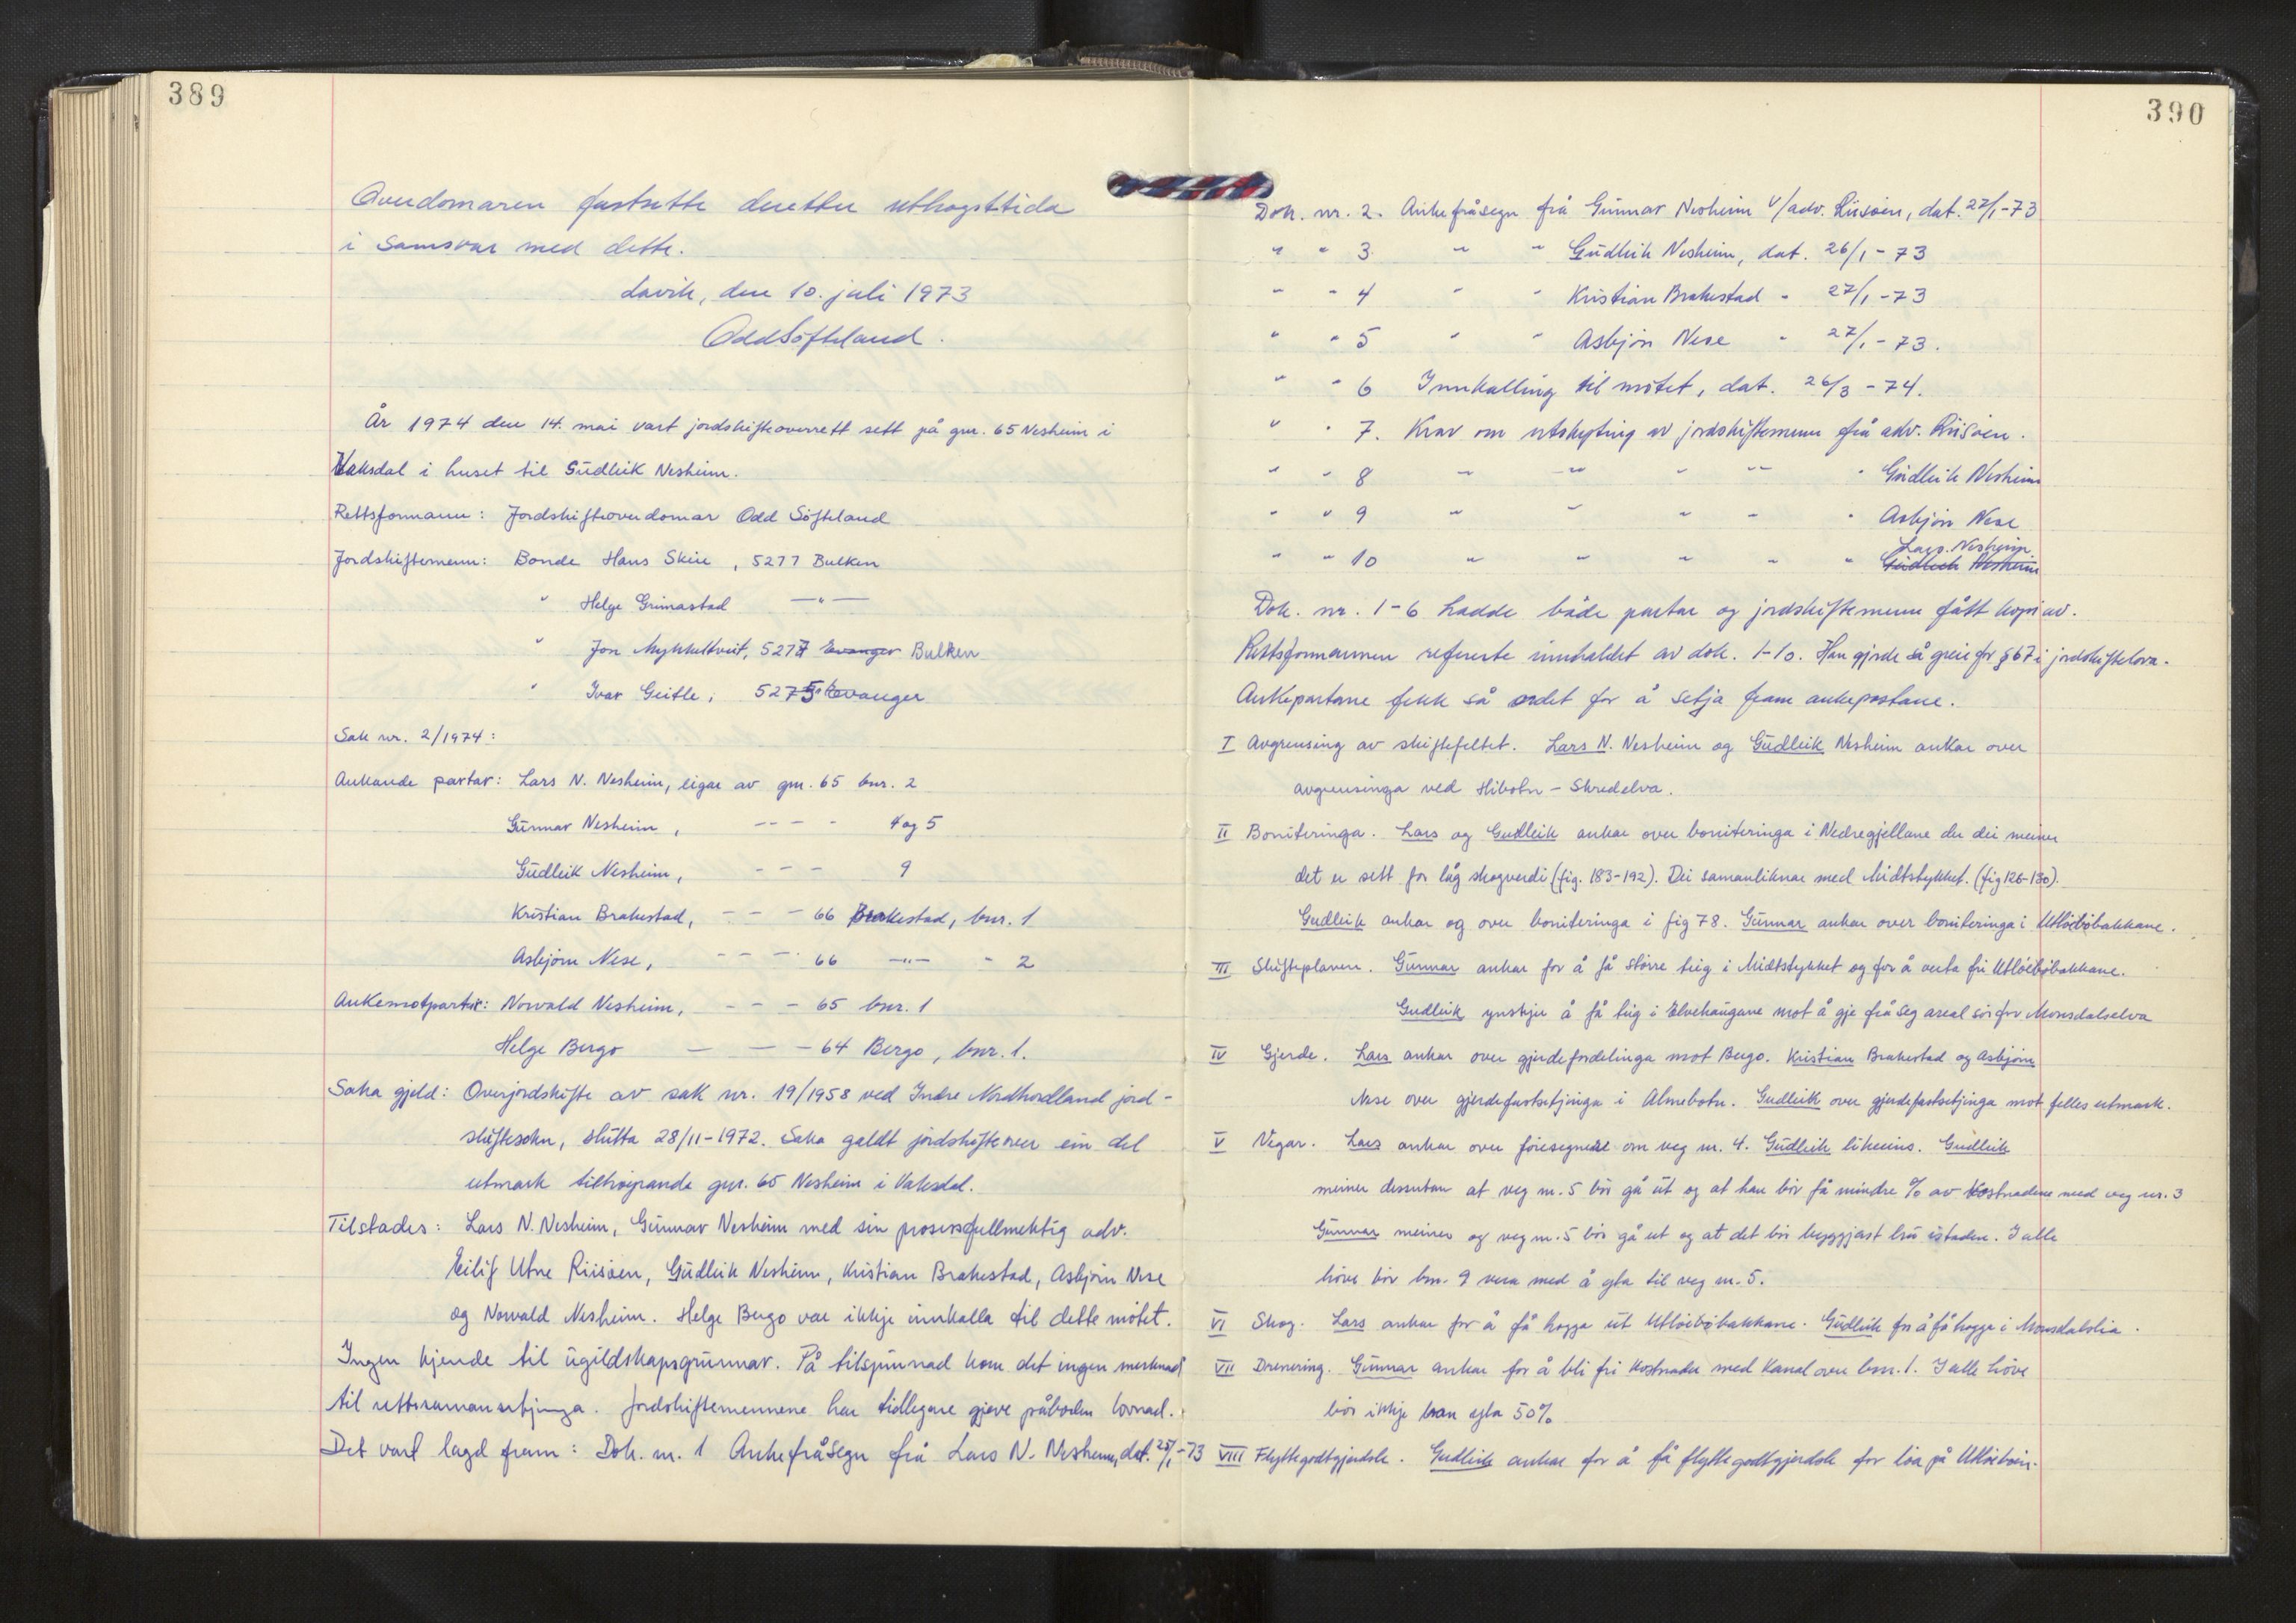 389
Overdomaren fastsette deretter uthogsttida
i samsvar med dette.
Lavik, den 10. juli 1973
Odd Söfteland.
År 1974 den 14. mai vart jordskifteoverrett sett på gnr. 65 Nesheim i
Vaksdal i huset til Gudleik Nesheim.
Rettsformann: Jordskifteoverdomar Odd Söfteland
Jordskiftemenn: Bonde Hans Skiie, 5277 Bulken
" Helge Grimastad —"—
" Jon Mykkeltveit, 5277 Evanger Bulken
" Ivar Geitle, 5275 Evanger
Sak nr. 2/1974:
Ankande partar: Lars N. Nesheim, eigar av gnr. 65 bnr. 2
Gunnar Nesheim, - - - - 4 og 5
Gudleik Nesheim, - - - 9
Kristian Brakestad, - - - 66 Brakestad, bnr. 1
Asbjörn Nese, - - - 66 —"— - 2
Ankemotpartar: Norvald Nesheim, - - - 65 bnr. 1
Helge Bergo — — - 64 Bergo, bnr. 1.
Saka gjeld: Overjordskifte av sak nr. 19/1958 ved Indre Nordhordland jord-
skiftesokn, slutta 28/11-1972. Saka galdt jordskifte over ein del
utmark tilhöyrande gnr. 65 Nesheim i Vaksdal.
Tilstades: Lars N. Nesheim, Gunnar Nesheim med sin prosessfullmektig adv.
Eilif Utne Riisöen, Gudleik Nesheim, Kristian Brakestad, Asbjörn Nese
og Norvald Nesheim. Helge Bergo var ikkje innkalla til dette mötet.
Ingen kjende til ugildskapsgrunnar. På tilspurnad kom det ingen merknad
til rettssamansetjinga. Jordskiftemennene har tidlegare gjeve påboden lovnad.
Det vart lagd fram: Dok. nr. 1 Ankefråsegn frå Lars N. Nesheim, dat. 25/1-73
390
Dok. nr. 2. Ankefråsegn frå Gunnar Nesheim v/adv. Riisöen, dat. 27/1-73
" " 3 " " Gudleik Nesheim, dat. 26/1-73
" " 4 " " Kristian Brakestad " 27/1-73
" " 5 " " Asbjörn Nese " 27/1-73.
" " 6 Innkalling til mötet, dat. 26/3-74.
" " 7. Krav om utskyting av jordskiftemenn frå adv. Riisöen.
" " 8 " " " " " Gudleik Nesheim
" " 9 " " " " " Asbjörn Nese
" " 10 " " " " " Lars Nesheim
Gudleik Nesheim
Dok. nr. 1-6 hadde både partar og jordskiftemenn fått kopi av.
Rettsformannen refererte innhaldet av dok. 1-10. Han gjorde så greie for § 67 i jordskiftelova.
Ankepartane fekk så ordet for å setja fram ankepostane.
I Avgrensing av skiftefeltet. Lars N. Nesheim og Gudleik Nesheim ankar over
avgrensinga ved Hibotn - Skredelva.
II Boniteringa. Lars og Gudleik ankar over boniteringa i Nedregjellane der dei meiner
det er sett for låg skogverdi (fig. 183-192). Dei samanliknar med Midtstykket. (fig 126-130).
Gudleik ankar og over boniteringa i fig 78. Gunnar ankar over boniteringa i Utlöeböbakkane.
III Skifteplanen. Gunnar ankar for å få större teig i Midtstykket og for å verta fri Utlöeböbakkane.
Gudleik ynskjer å få teig i Elvehaugane mot å gje frå seg areal sör for Monsdalselva
IV Gjerde. Lars ankar over gjerdefordelinga mot Bergo. Kristian Brakestad og Asbjörn
Nese over gjerdefastsetjinga i Almebotn. Gudleik over gjerdefastsetjinga mot felles utmark.
V Vegar. Lars ankar over föresegnene om veg nr. 4. Gudleik likeeins. Gudleik
meiner dessutan at veg nr. 5 bör gå ut og at han bör få mindre % av kostnadene med veg nr. 3
Gunnar meiner og veg nr. 5 bör gå ut og at det bör byggjast bru istaden. I alle
höve bör bnr. 9 vera med å yta til veg nr. 5.
VI Skog. Lars ankar for å få hogga ut Utlöeböbakkane. Gudleik for å få hogge i Monsdalslia.
VII Drenering. Gunnar ankar for å bli fri kostnader med kanal over bnr. 1. I alle höve
bör ikkje han yta 50%
VIII Flyttegodtgjerdsle. Gudleik ankar for å få flyttegodtgjerdsle for löa på Utlöeböen.